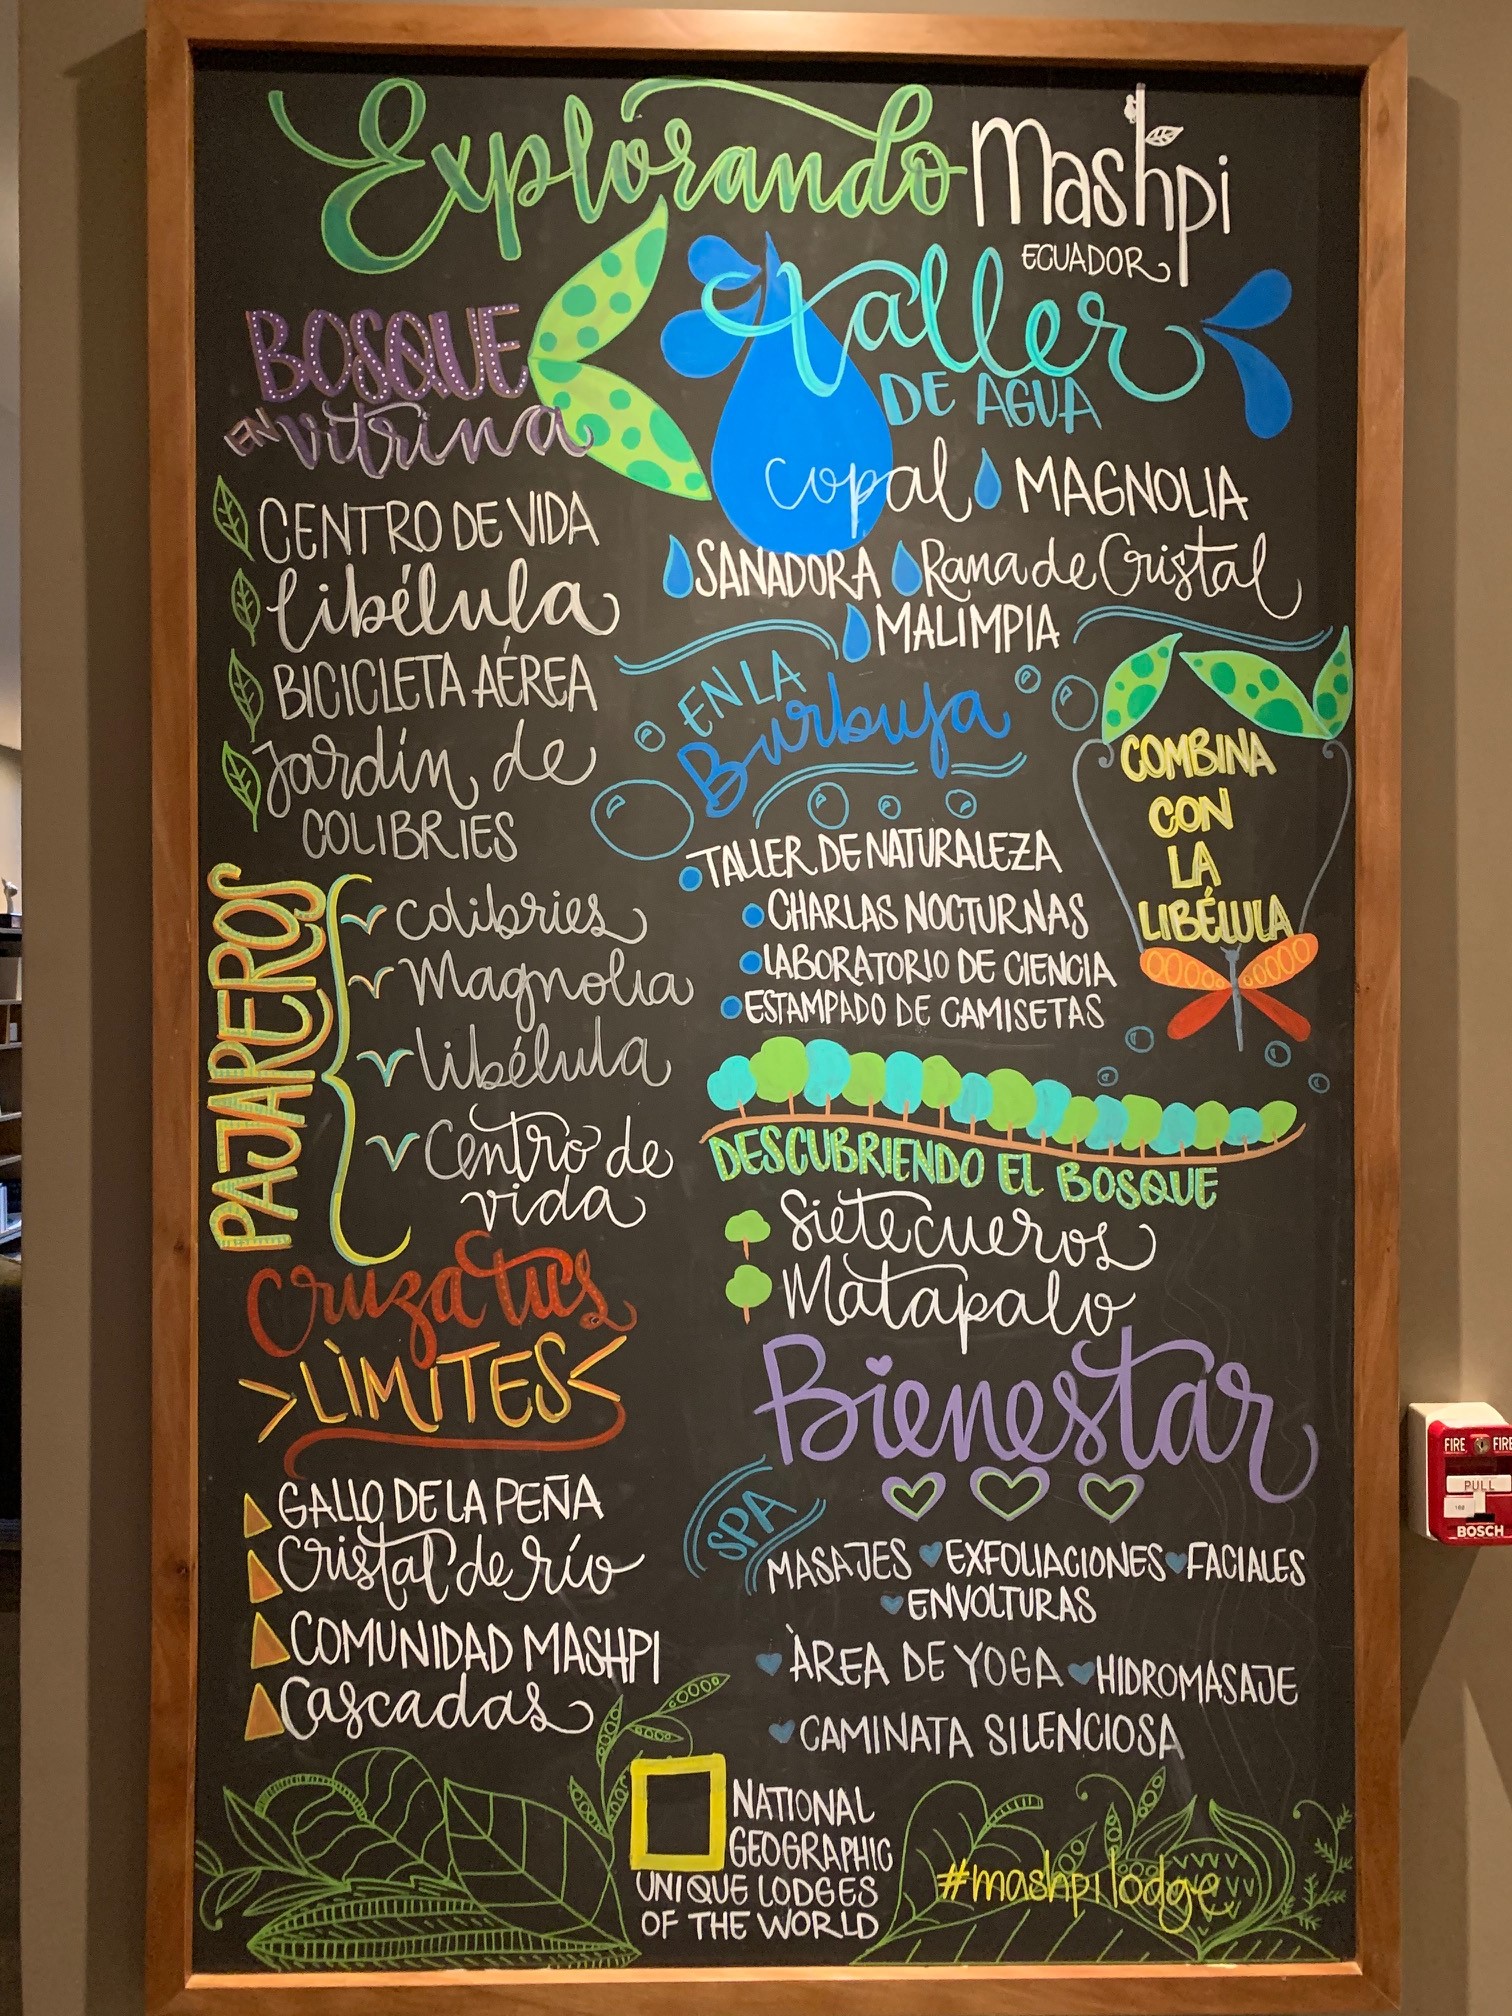 Explorando mashpi
ECUADOR
BOSQUE
EN vitrina
CENTRO DE VIDA
libélula
BICICLETA AÉREA
Jardín de
COLIBRIES
PAJAREROS
colibries
Magnolia
libélula
Centro de
vida
Cruza tus
>LÌMITES<
GALLO DE LA PEÑA
Cristal de río
COMUNIDAD MASHPI
Cascadas
Taller
DE AGUA
Copal MAGNOLIA
SANADORA Rana de Cristal
MALIMPIA
EN LA
Burbuja
TALLER DE NATURALEZA
CHARLAS NOCTURNAS
LABORATORIO DE CIENCIA
ESTAMPADO DE CAMISETAS
COMBINA
CON
LA
LIBÉLULA
DESCUBRIENDO EL BOSQUE
Sietecueros
Matapalo
Bienestar
SPA
MASAJES EXFOLIACIONES FACIALES
ENVOLTURAS
ÀREA DE YOGA HIDROMASAJE
CAMINATA SILENCIOSA
NATIONAL
GEOGRAPHIC
UNIQUE LODGES
OF THE WORLD
#mashpilodge
FIRE FIRE
PULL
BOSCH